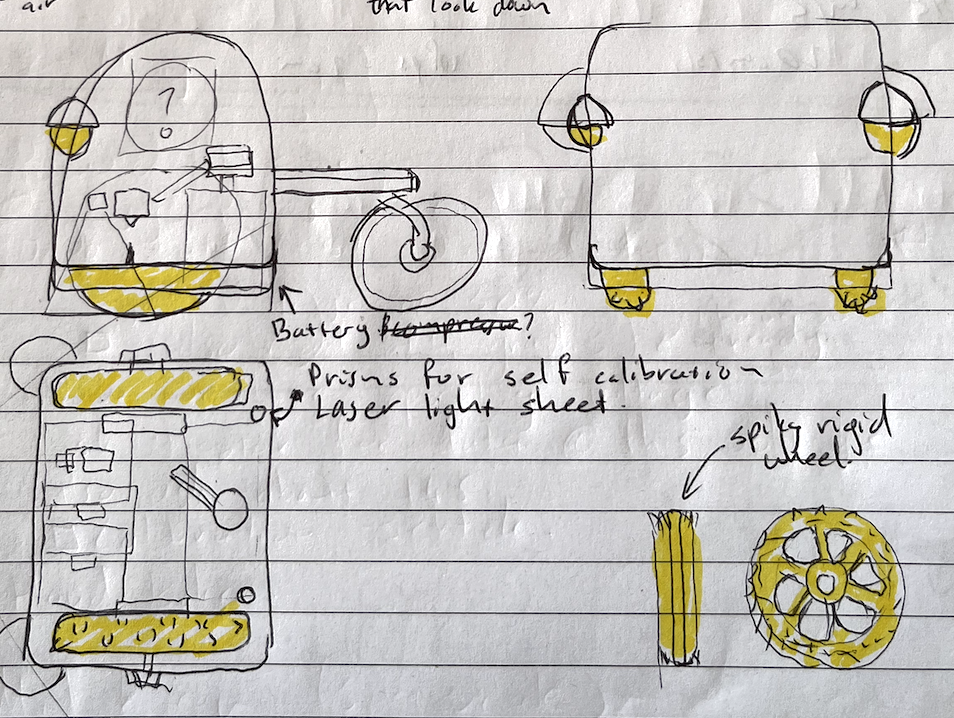 air
that look down
?
Battery ?
Prisms for self calibration
Laser light sheet.
spiky rigid
wheel.